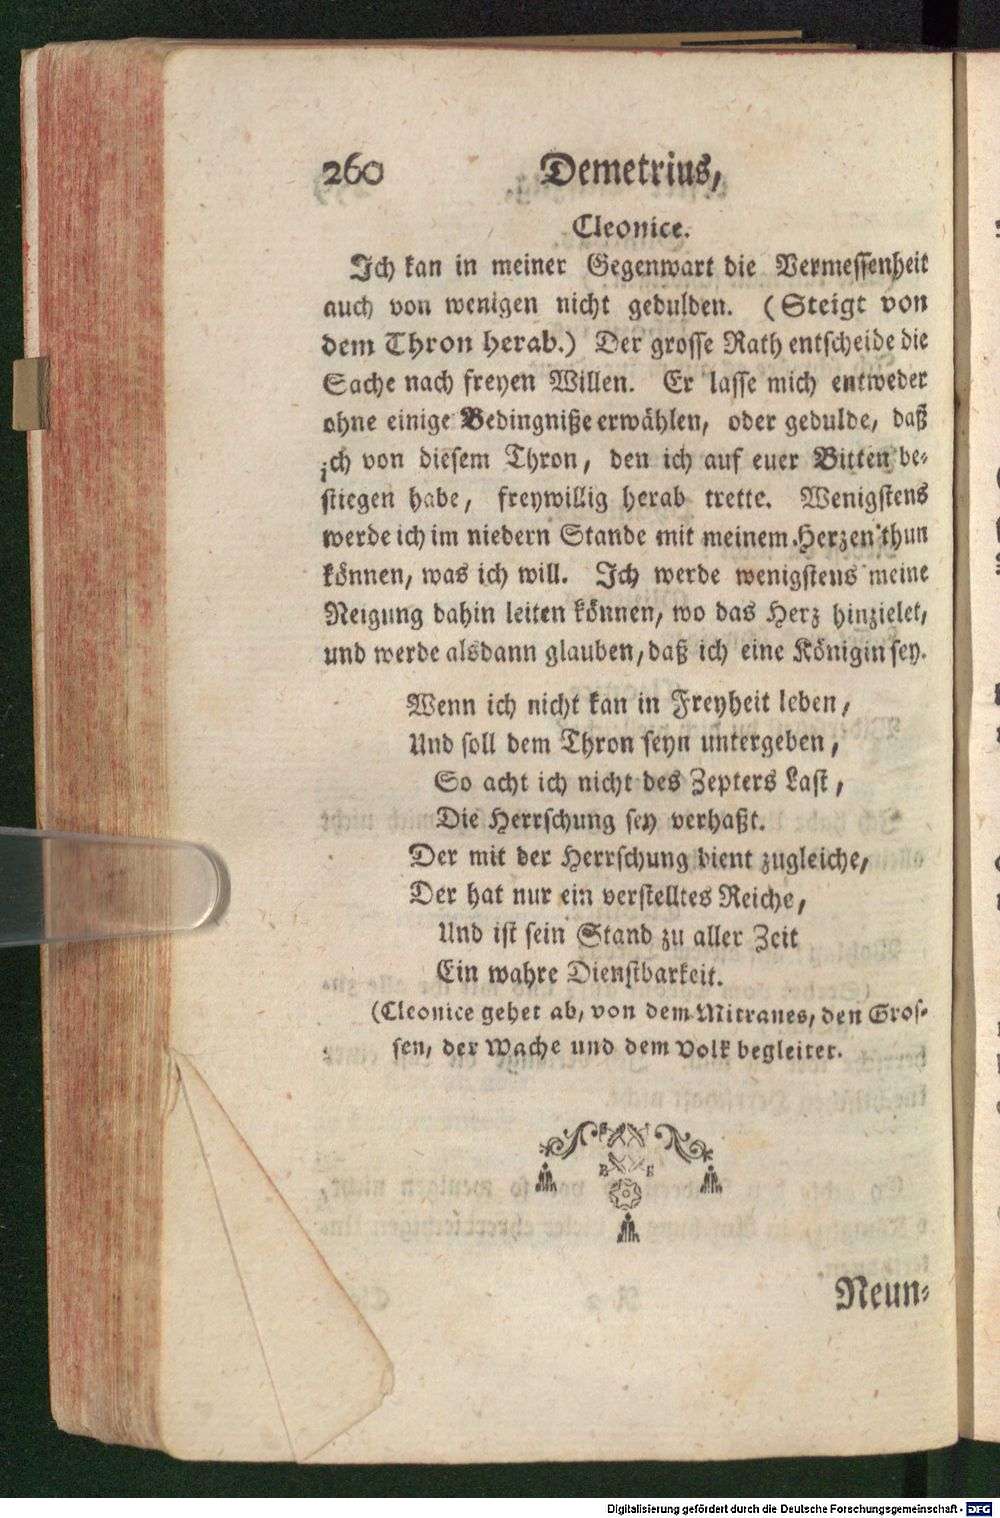 260 Demetrius,
Cleonice.
Ich kan in meiner Gegenwart die Vermessenheit
auch von wenigen nicht gedulden. (Steigt von
dem Thron herab.) Der grosse Rath entscheide die
Sache nach freyen Willen. Er lasse mich entweder
ohne einige Bedingniße erwählen, oder gedulde, daß
ich von diesem Thron, den ich auf euer Bitten be-
stiegen habe, freywillig herab trette. Wenigstens
werde ich im niedern Stande mit meinem Herzen thun
können, was ich will. Ich werde wenigstens meine
Neigung dahin leiten können, wo das Herz hinzielet,
und werde alsdann glauben, daß ich eine Königin sey.
Wenn ich nicht kan in Freyheit leben,
Und soll dem Thron seyn untergeben,
So acht ich nicht des Zepters Last,
Die Herrschung sey verhaßt.
Der mit der Herrschung dient zugleiche,
Der hat nur ein verstelltes Reiche,
Und ist sein Stand zu aller Zeit
Ein wahre Dienstbarkeit.
(Cleonice gehet ab, von dem Mitranes, den Gros-
sen, der Wache und dem Volk begleitet.
Neun-
Digitalisierung gefördert durch die Deutsche Forschungsgemeinschaft - DFG